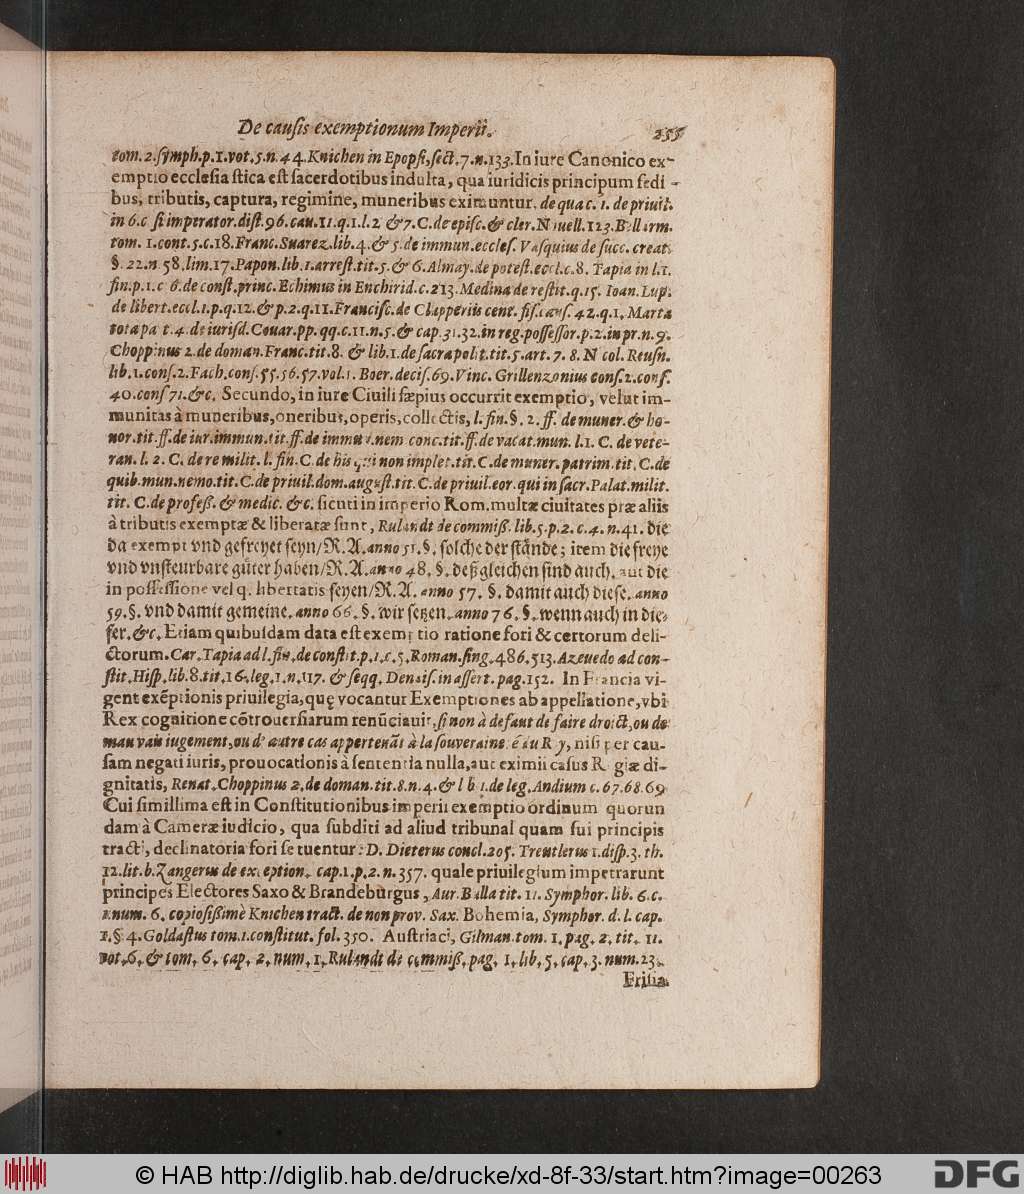 De causis exemptionum Imperii. 255
tom. 2. symph. p. 1. vot. 5. n. 44. Knichen in Epopsi, sect. 7. n. 133. In iure Canonico ex-
emptio ecclesiastica est sacerdotibus indulta, qua iuridicis principum sedi-
bus, tributis, captura, regimine, muneribus eximuntur. de qua c. 1. de priuil.
in 6. c si imperator. dist. 96. cau. 11. q. 1. l. 2 & 7. C. de episc. & cler. Nouell. 123. Bellarm.
tom. 1. cont. 5. c. 18. Franc. Suarez. lib. 4. & 5. de immun. eccles. Vasquius de succ. creat.
§. 22. n 58. lim. 17. Papon. lib. 1. arrest. tit. 5. & 6. Almay. de potest. eccl. c. 8. Tapia in l. 1.
fin. p. 1. c 6. de const. princ. Echimus in Enchirid. c. 213. Medina de restit. q. 15. Ioan. Lup.
de libert. eccl. 1. p. q. 12. & p. 2. q. 11. Francisc. de Clapperiis cent. fis. caus. 42. q. 1. Marta
tota pa t. 4. de iurisd. Couar. pp. qq. c. 11. n. 5. & cap. 31. 32. in reg. possessor. p. 2. in pr. n. 9.
Choppinus 2. de doman. Franc. tit. 8. & lib. 1. de sacra polit. tit. 5. art. 7. 8. N col. Reusn.
lib. 1. cons. 2. Fach. cons. 55. 56. 57. vol. 1. Boer. decis. 69. Vinc. Grillenzonius cons. 2. cons.
40. cons 71. &c. Secundo, in iure Ciuili sæpius occurrit exemptio, velut im-
munitas à muneribus, oneribus, operis, collectis, l. fin. §. 2. ff. de muner. & ho-
nor. tit. ff. de iur. immun. tit. ff. de immu. nem conc. tit. ff. de vacat. mun. l. 1. C. de vete-
ran. l. 2. C. de re milit. l. fin. C. de his qui non implet. tit. C. de muner. patrim. tit. C. de
quib. mun. nemo. tit. C. de priuil. dom. august. tit. C. de priuil. eor. qui in sacr. Palat. milit.
tit. C. de profeß. & medic. &c. sicuti in imperio Rom. multæ ciuitates præ aliis
à tributis exemptæ & liberatæ sunt, Rulandt de commiß. lib. 5. p. 2. c. 4. n. 41. die
da exempt vnd gefreyet seyn/ R. A. anno 51. §. solche der stände; item die freye
vnd vnsteurbare güter haben/ R. A. anno 48. §. deßgleichen sind auch. aut die
in possessione vel q. libertatis seyen/ R. A. anno 57. §. damit auch diese. anno
59. §. vnd damit gemeine. anno 66. §. wir setzen. anno 76. §. wenn auch in die-
ser. &c. Etiam quibusdam data est exemptio ratione fori & certorum deli-
ctorum. Car. Tapia ad l. fin. de constit. p. 1. c. 5. Roman. sing. 486. 513. Azeuedo ad con-
stit. Hisp. lib. 8. tit. 16. leg. 1. n. 117. & seqq. Denais. in assert. pag. 152. In Francia vi-
gent exẽptionis priuilegia, quę vocantur Exemptiones ab appellatione, vbi
Rex cognitione cõtrouersiarum renũciauit, si non à defaut de faire droict, ou de
mauvais iugement, ou d' autre cas appertenãt à la souveraineté du Roy, nisi per cau-
sam negati iuris, prouocationis à sententia nulla, aut eximii casus Regiæ di-
gnitatis, Renat. Choppinus 2. de doman. tit. 8. n. 4. & lib 1. de leg. Andium c. 67. 68. 69
Cui simillima est in Constitutionibus imperii exemptio ordinum quorun
dam à Cameræ iudicio, qua subditi ad aliud tribunal quam sui principis
tracti, declinatoria fori se tuentur: D. Dieterus concl. 205. Treutlerus 1. disp. 3. th.
12. lit. b. Zangerus de exception. cap. 1. p. 2. n. 357. quale priuilegium impetrarunt
principes Electores Saxo & Brandeburgus, Aur. Bulla tit. 11. Symphor. lib. 6. c.
1 num. 6. copiosißimè Knichen tract. de non prov. Sax. Bohemia, Symphor. d. l. cap.
1. § 4. Goldastus tom. 1. constitut. fol. 350. Austriaci, Gilman. tom. 1. pag. 2. tit. 11.
vot. 6. & tom. 6. cap. 2. num. 1. Rulandt de commiß. pag. 1. lib. 5. cap. 3. num. 23.
Frisia.
© HAB http://diglib.hab.de/drucke/xd-8f-33/start.htm?image=00263
DFG